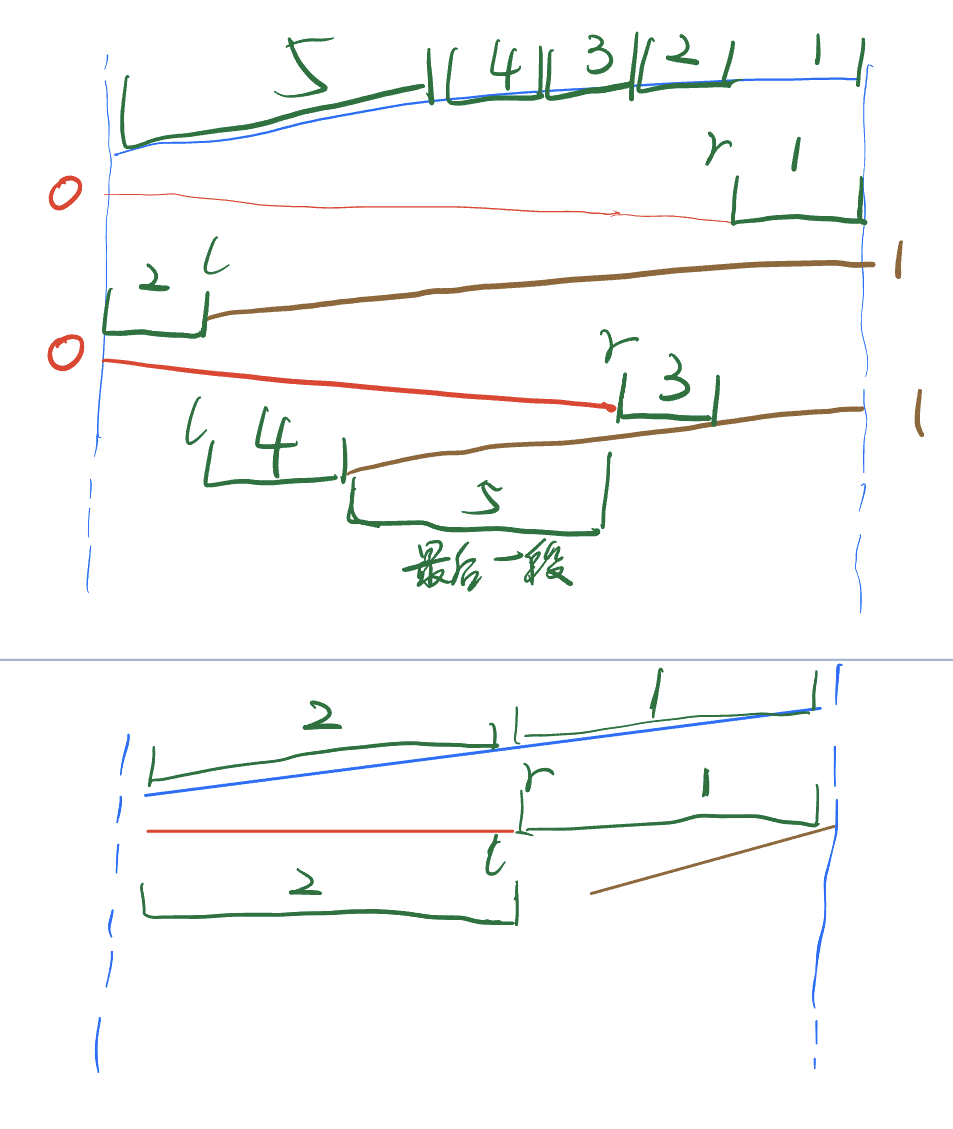 5 4 3 2 1
r 1
0
2 l
1
0
r 3
l 4
1
5
最后一段
2 1
r 1
l
2